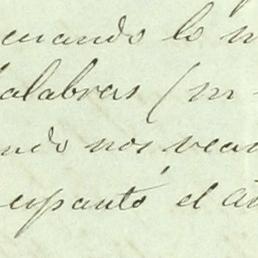 cuando lo m
alabras (m-
ndo nos vea
espantó el a